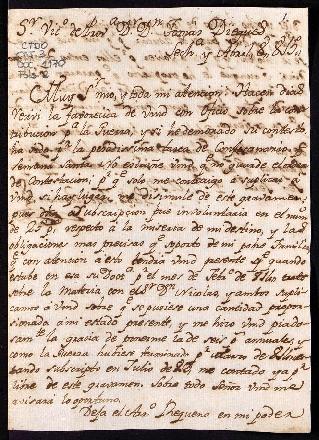 Sr Vico de Prov. D. D. Tomas Diegues
Sech.a y Abril 8
CTDO
4170
Muy Sr mio, y toda mi atencion: Hacen dias
recivi la favorecida de Vmd con Oficio sobre la con
tribucion pa la Guerra, y si he demorado su contesto,
ha sido pr la penosisima tarea de Confesonario, y
Semana Santa
Contestacion; pr qe solo me contraigo a suplicar a
Vmd si hai lugar disimule de este gravamen,
pues subscripcion fue involuntaria en el num
de 25 ps respeto a la miseria de mi destino, y las
obligaciones mas precisas qe soporto de mi pobre Familia,
qe con atencion a esto tendra Vmd presente qe quando
estube en esa su Doct.a pr el mes de Febo de
sobre la Materia con el Sr Dn Nicolas, y ambos supli
camos a Vmd sobre qe se pusiese una cantidad propor
sionada a mi estado presente, y me hizo Vmd piado
samte la gracia de ponerme la de seis ps annuales, y
como la Guerra hubiese terminado pr Marzo de
bando subscripto en Julio de me contado ya pr
libre de este gravamen. Sobre todo Señor Vmd me
avisará lo oportuno.
Dega el Arro Pregueno en mi poder